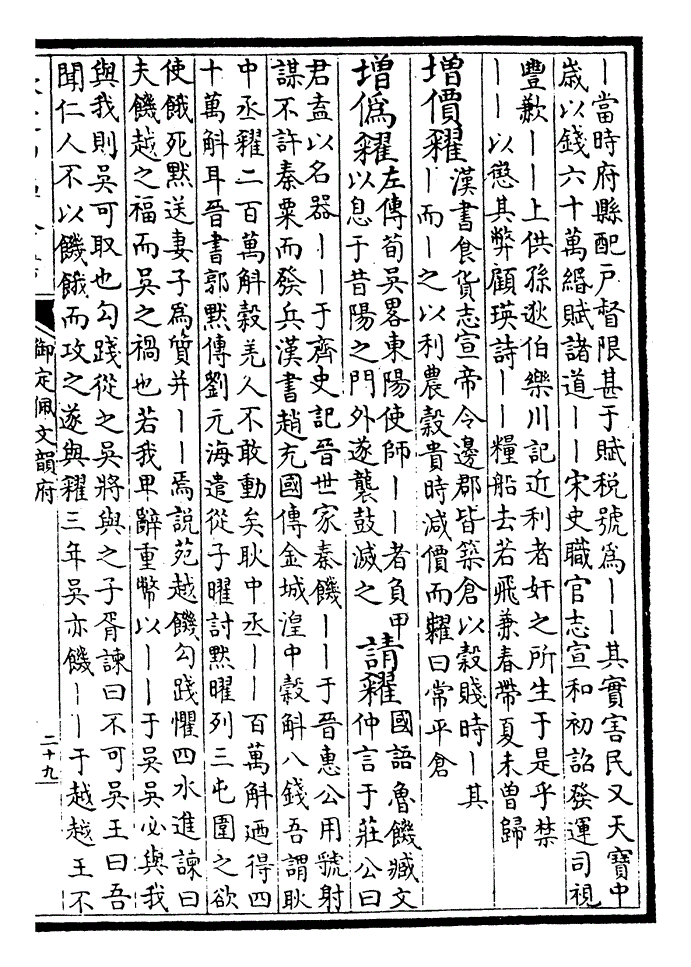 ｜當時府縣配戶督限甚于賦税號爲｜｜其實害民又天寶中
歲以錢六十萬緡賦諸道｜｜宋史職官志宣和初詔發運司視
豐歉｜｜上供孫逖伯樂川記近利者奸之所生于是乎禁
｜｜以懲其弊顧瑛詩｜｜糧船去若飛兼春帶夏未曾歸
增價糴
漢書食貨志宣帝令邊郡皆築倉以穀賤時｜其
｜而｜之以利農穀貴時減價而糶曰常平倉
增僞糴
左傳荀吳畧東陽使師｜｜者負甲
以息于昔陽之門外遂襲鼓滅之
請糴
國語魯饑臧文
仲言于莊公曰
君盍以名器｜｜于齊史記晉世家秦饑｜｜于晉惠公用虢射
謀不許秦粟而發兵漢書趙充國傳金城湟中穀斛八錢吾謂耿
中丞糴二百萬斛穀羌人不敢動矣耿中丞｜｜百萬斛廼得四
十萬斛耳晉書郭默傳劉元海遣從子曜討默曜列三屯圍之欲
使餓死默送妻子爲質并｜｜焉説苑越饑勾踐懼四水進諫曰
夫饑越之福而吳之禍也若我卑辭重幣以｜｜于吳吳必與我
與我則吳可取也勾踐從之吳將與之子胥諫曰不可吳王曰吾
聞仁人不以饑餓而攻之遂與糴三年吳亦饑｜｜于越越王不
御定佩文韻府
二十九